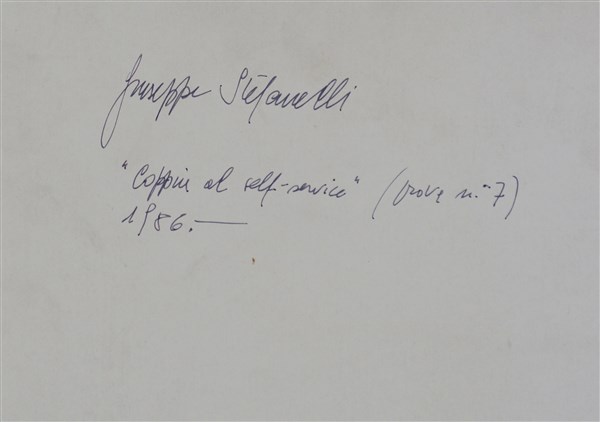 Giuseppe Stefanelli
"Coppia al self-service" (prova n.° 7)
1986.—